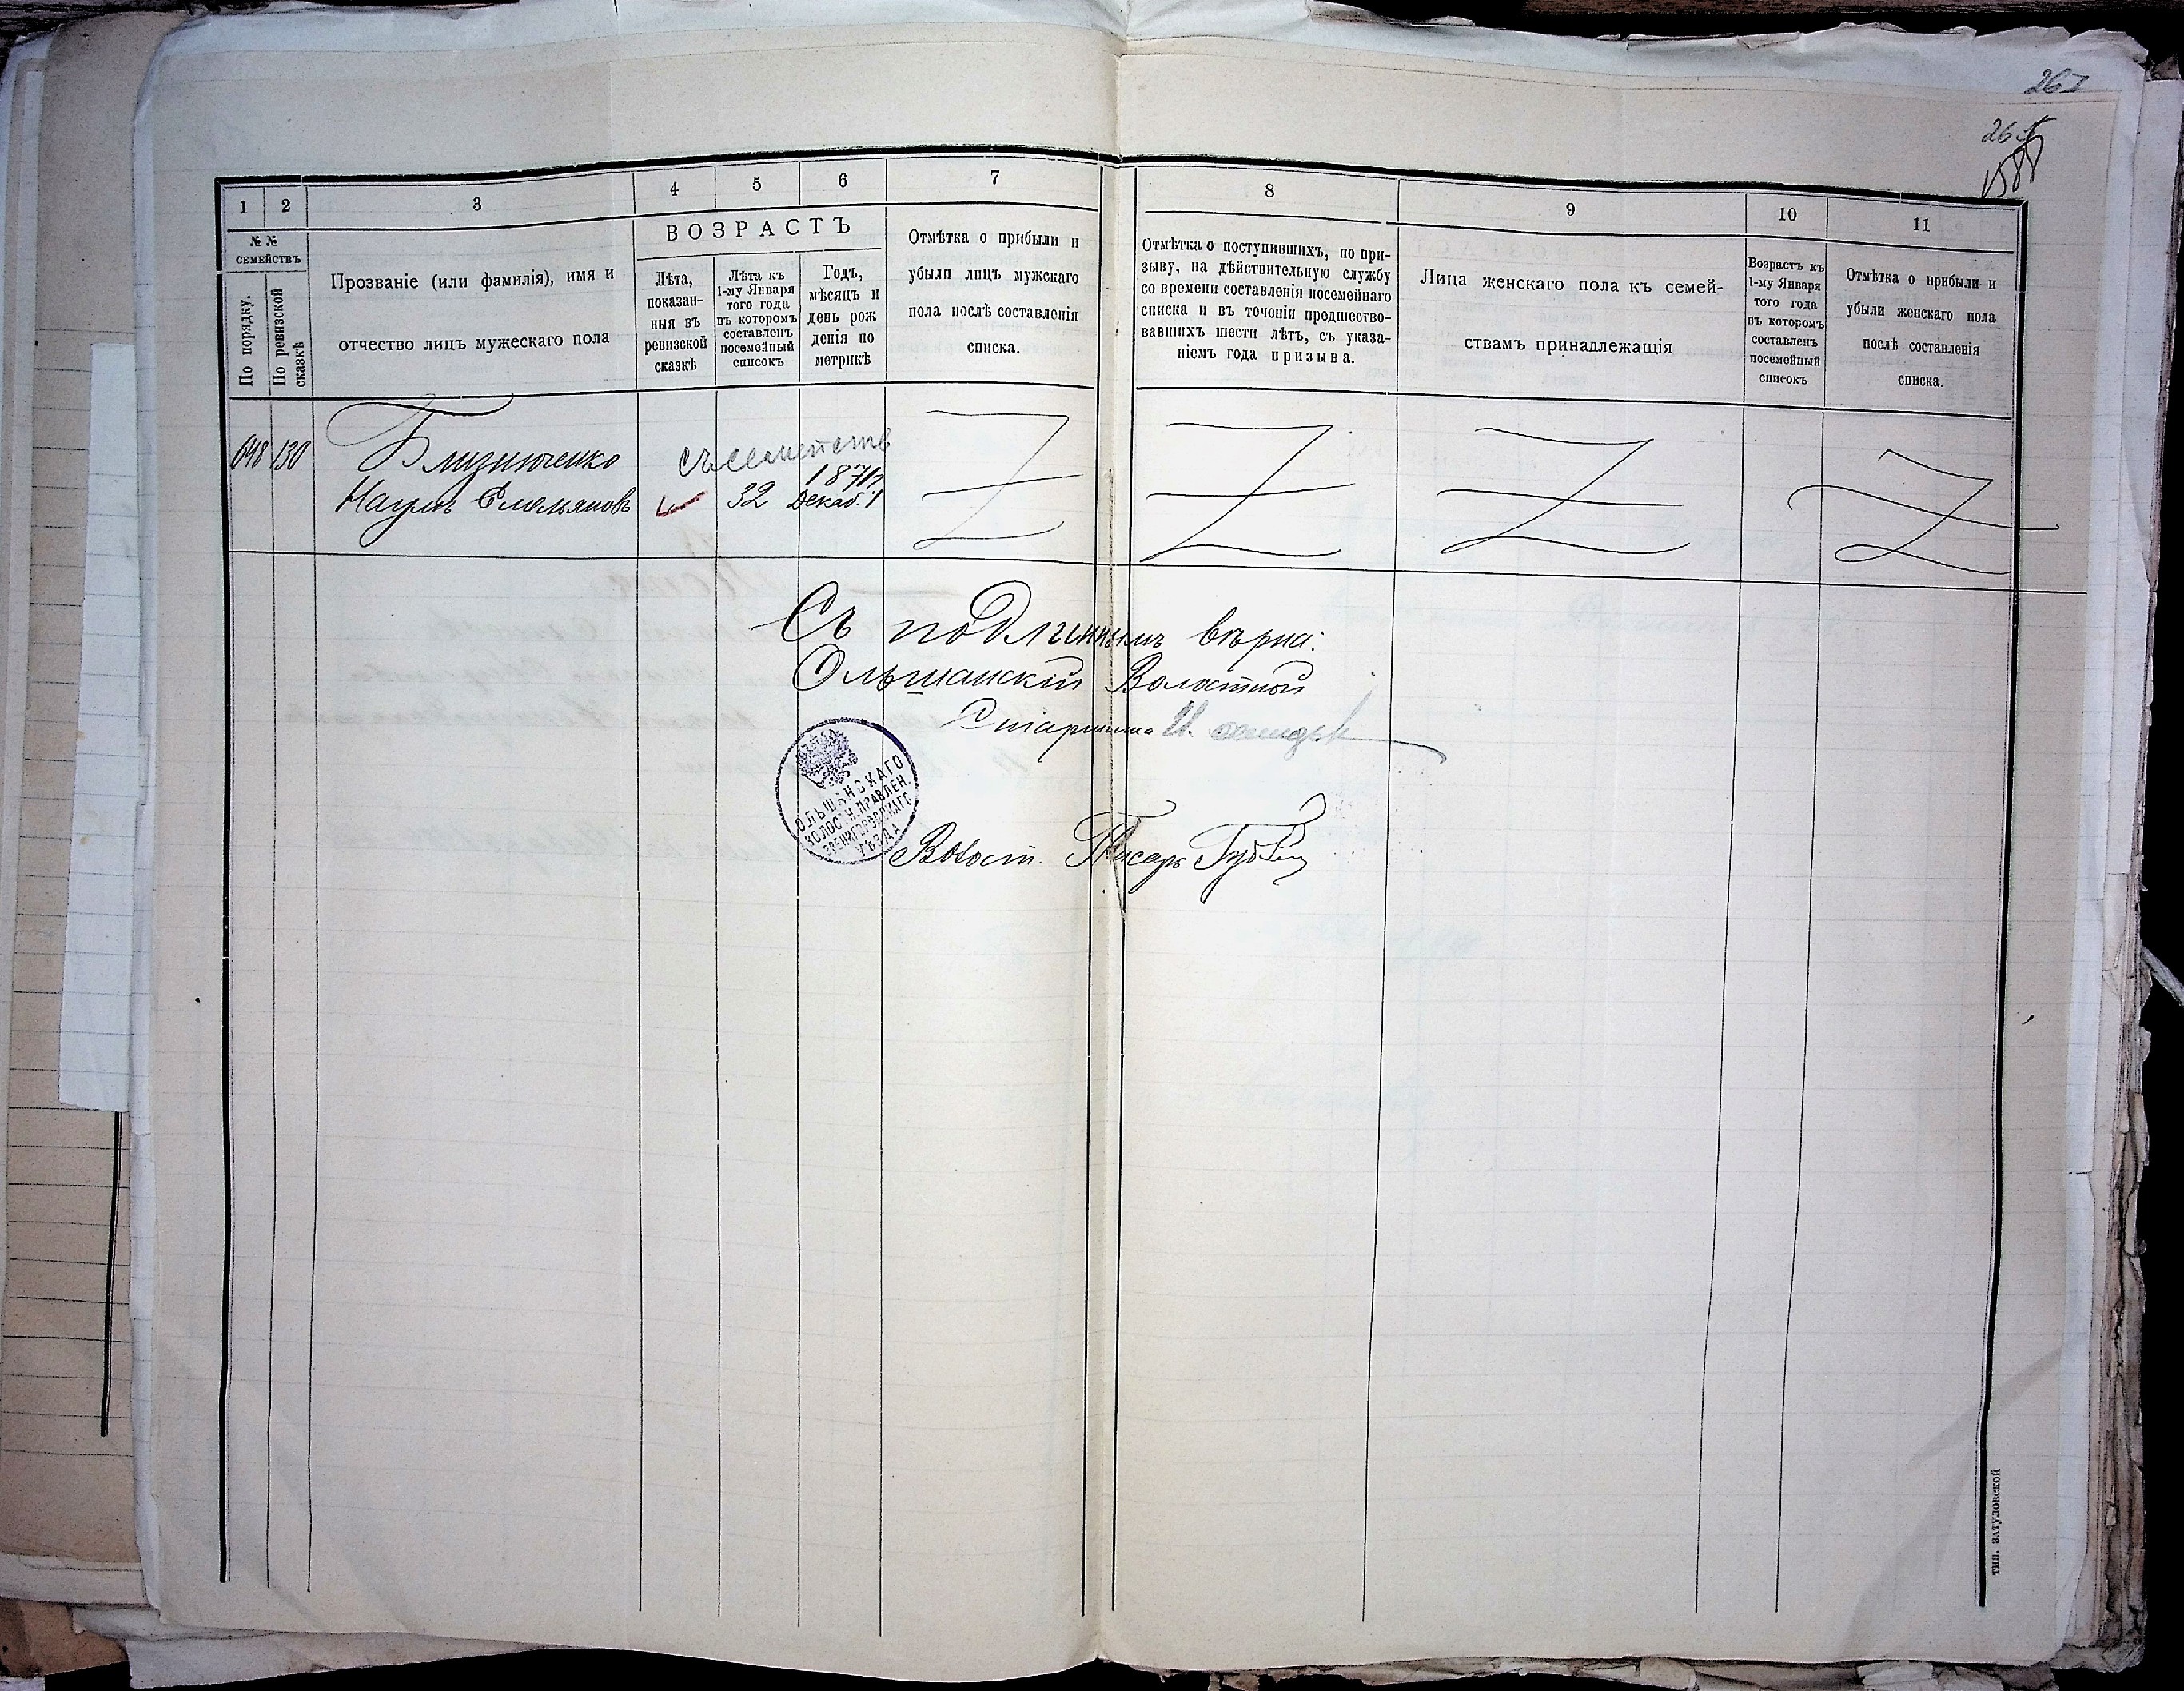 267
1 2 3 4 5 6 7 8 9 10 11
№ №
семействъ
По порядку.
По ревизской сказкѣ
Прозваніе (или фамилія), имя и
отчество лицъ мужескаго пола
ВОЗРАСТЪ
Лѣта,
показан-
ныя въ
ревизской
сказкѣ
Лѣта къ
1-му Января
того года
въ которомъ
составленъ
посемейный
списокъ
Годъ,
мѣсяцъ и
день рож
денія по
метрикѣ
Отмѣтка о прибыли и
убыли лицъ мужскаго
пола послѣ составленія
списка.
Отмѣтка о поступившихъ, по при-
зыву, на дѣйствительную службу
со времени составленія посемейнаго
списка и въ теченіи предшество-
вавшихъ шести лѣтъ, съ указа-
ніемъ года призыва.
Лица женскаго пола къ семей-
ствамъ принадлежащія
Возрастъ къ
1-му Января
того года
въ которомъ
составленъ
посемейный
списокъ
Отмѣтка о прибыли и
убыли женскаго пола
послѣ составленія
списка.
648 130 Близнюченко
Наумъ Емельяновъ 32 Декаб. 1
Съ подлиннымъ вѣрна:
Ольшанскій Волостной
Старшина
ОЛЬШАНСКАГО
ВОЛОСТН. ПРАВЛЕН.
ЗВЕНИГОРОДСКАГО
УѢЗДА
Волост. Писарь
тип. Затуловской